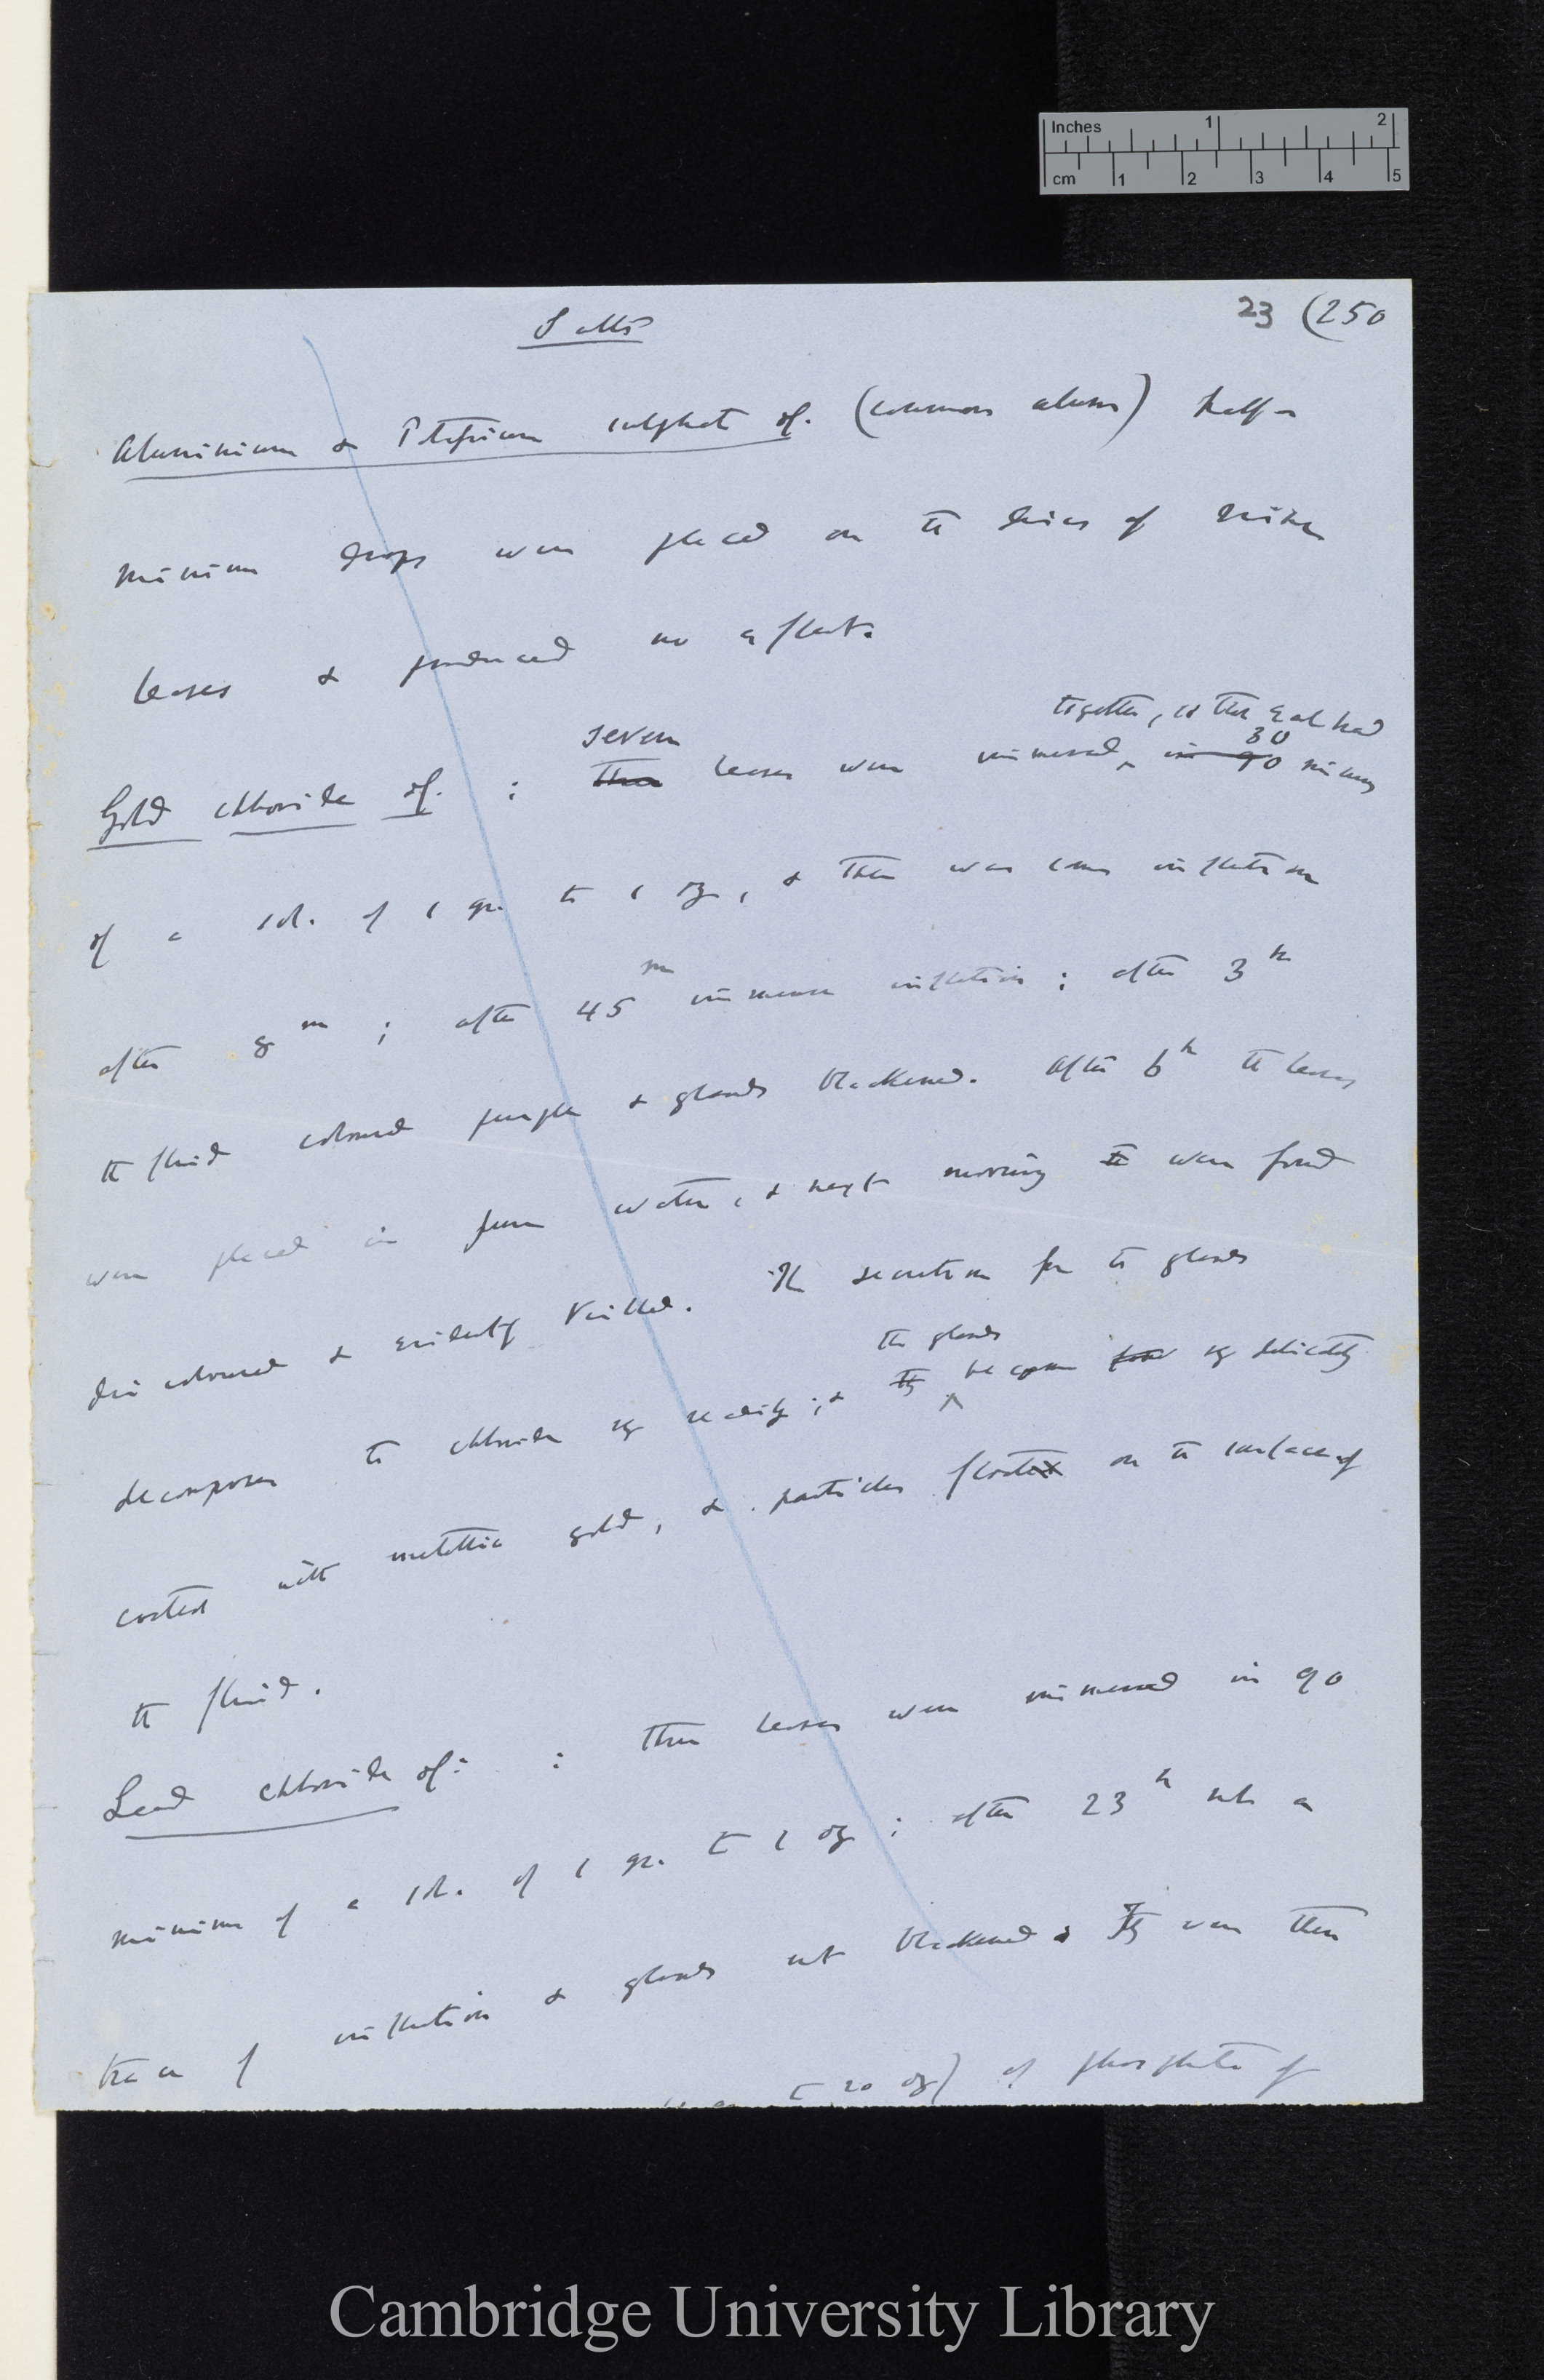 Inches 1 2
cm 1 2 3 4 5
Salts
23 (250
Aluminium & Potassium sulphate of. (common alum) half-
minim drops were placed on the discs of nine
leaves & produced no effect.
together, so that each had
seven 30
Gold chloride of. : three leaves were immersed in 90 minims
of a sol. of 1 gr. to 1 oz, & there was some inflection
after 8m ; after 45m immense inflection ; after 3h
the fluid coloured purple & glands blackened. After 6h the leaves
were placed in pure water, & next morning the were found
discoloured & evidently killed. The secretion from the glands
the glands
decomposes the chloride very readily ; & they become very delicately
coated with metallic gold, & particles float on the surface of
the fluid.
Lead chloride of. : three leaves were immersed in 90
minims of a sol. of 1 gr. to 1 oz ; after 23h not a
trace of inflection & glands not blackened & They were then
to 20 oz) of phosphate of
Cambridge University Library